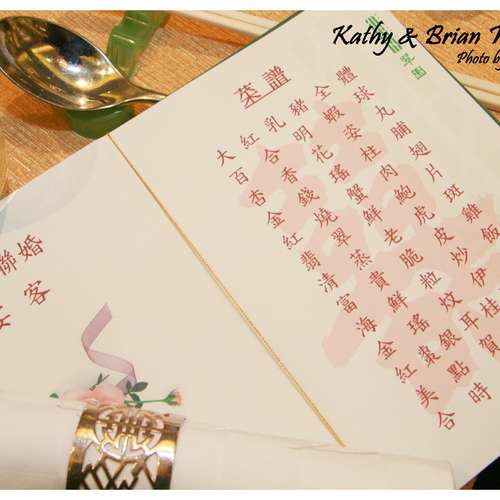 Kathy & Brian
Photo by
翠園
菜譜
大紅乳豬全體
百合明蝦球
杏香花姿丸
金錢瑤柱脯
紅燒蟹肉翅
翡翠鮮鮑片
清蒸老虎斑
富貴脆皮雞
海鮮粒炒飯
金瑤炆伊
紅棗銀耳桂
美點賀
合時
聯婚
宴客